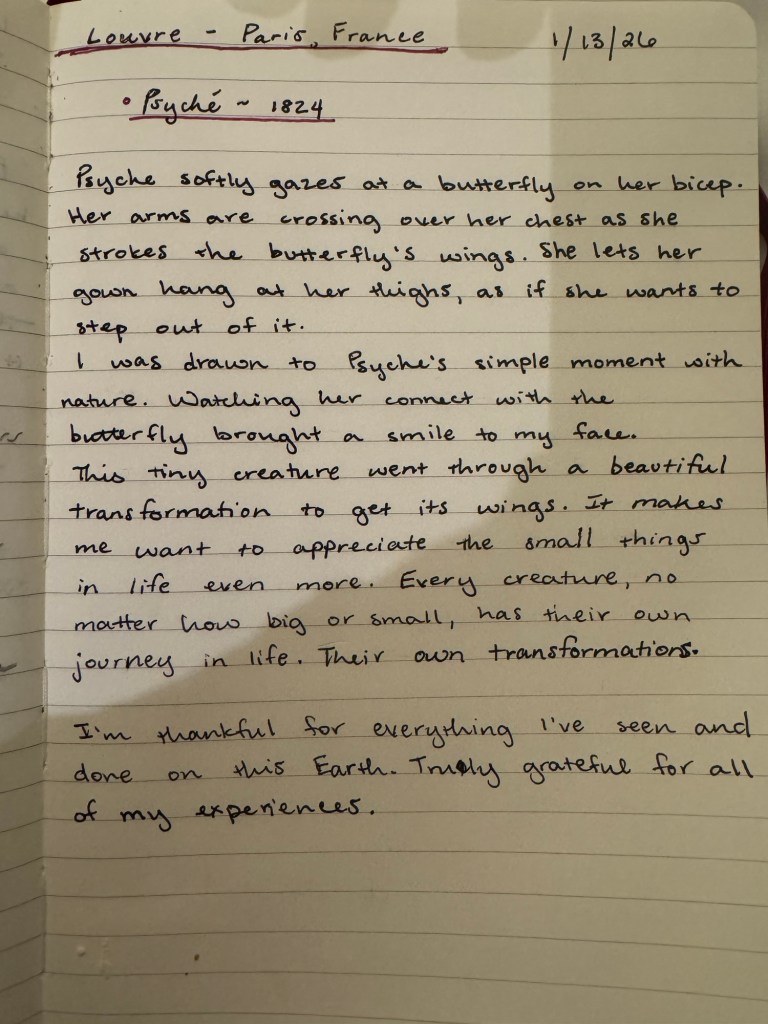 Louvre - Paris, France 1/13/26
• Psyché ~ 1824
Psyche softly gazes at a butterfly on her bicep.
Her arms are crossing over her chest as she
strokes the butterfly's wings. She lets her
gown hang at her thighs, as if she wants to
step out of it.
I was drawn to Psyche's simple moment with
nature. Watching her connect with the
butterfly brought a smile to my face.
This tiny creature went through a beautiful
transformation to get its wings. It makes
me want to appreciate the small things
in life even more. Every creature, no
matter how big or small, has their own
journey in life. Their own transformations.
I'm thankful for everything I've seen and
done on this Earth. Truly grateful for all
of my experiences.